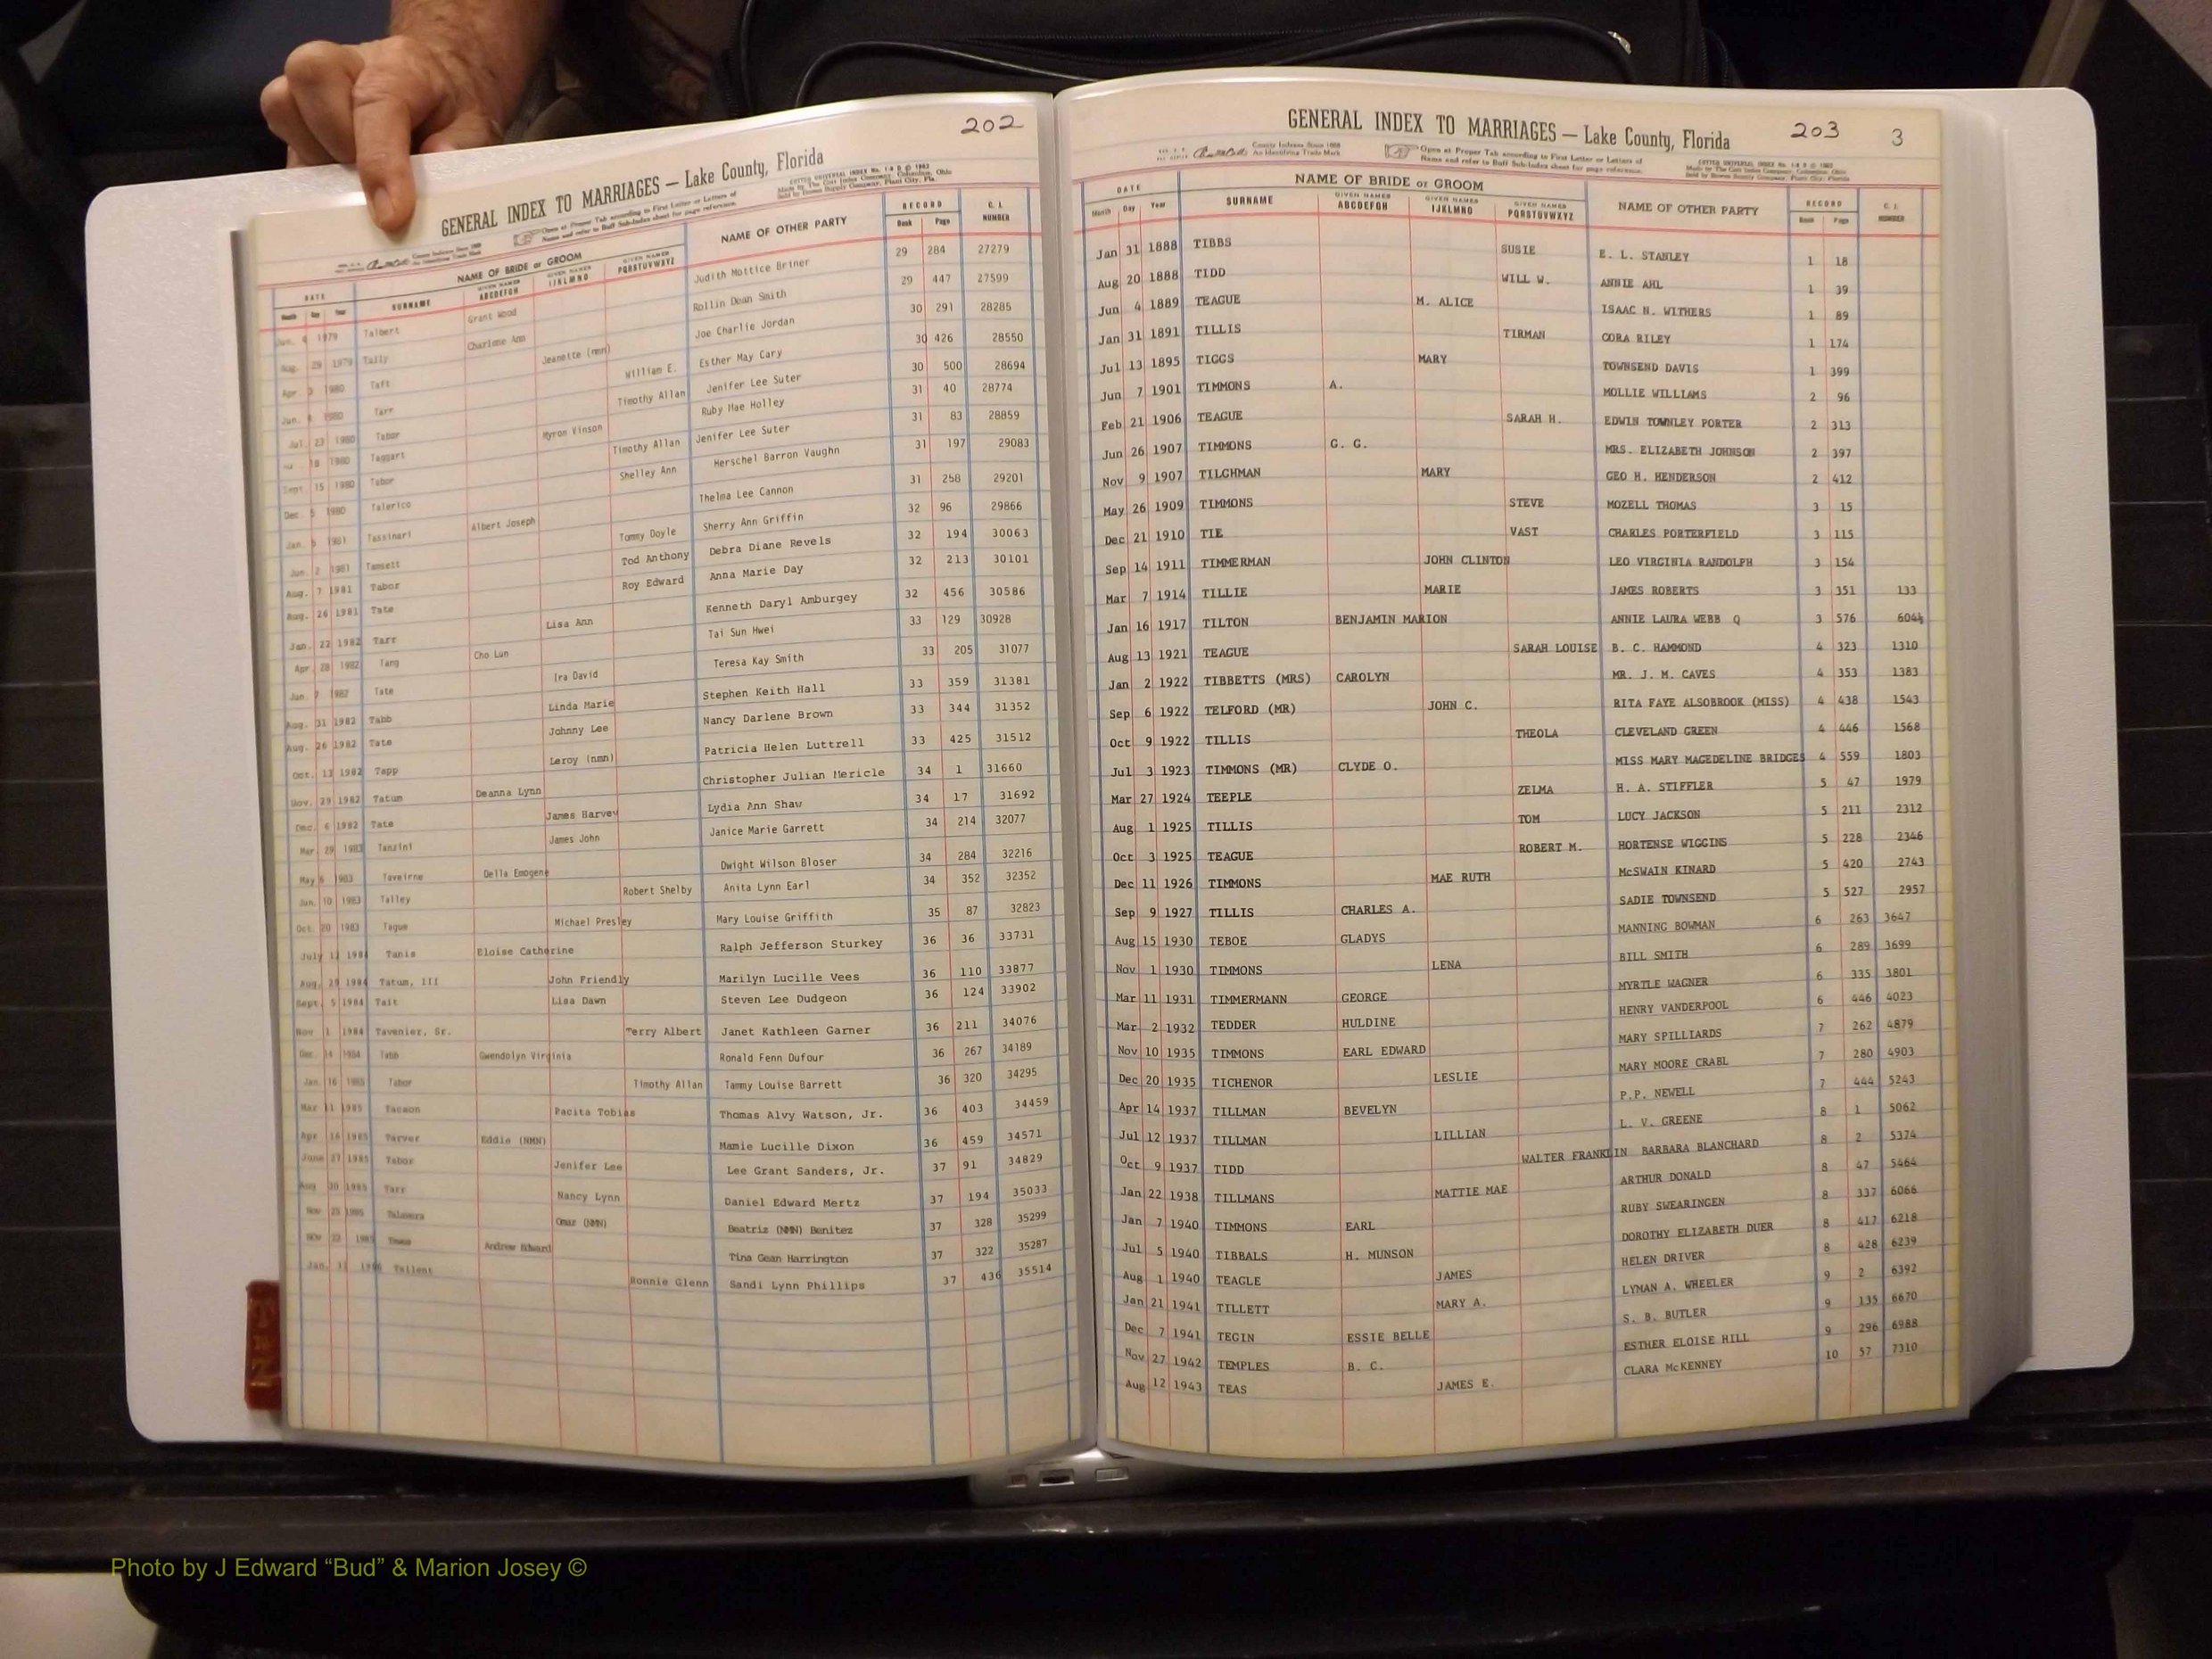 202
GENERAL INDEX TO MARRIAGES — Lake County, Florida
County Indexes Since 1888
An Identifying Trade Mark
Open at Proper Tab according to First Letter or Letters of
Name and refer to Buff Sub-Index sheet for page reference.
DATE NAME OF BRIDE or GROOM NAME OF OTHER PARTY RECORD C. I. NUMBER
Month Day Year SURNAME GIVEN NAMES ABCDEFGH GIVEN NAMES IJKLMNO GIVEN NAMES PQRSTUVWXYZ Book Page
Jun. 4 1979 Talbert Grant Wood Judith Mottice Briner 29 284 27279
Aug. 29 1979 Tally Charlene Ann Rollin Dean Smith 29 447 27599
Apr. 3 1980 Taft Jeanette (nmn) Joe Charlie Jordan 30 291 28285
Jun. 6 1980 Tarr William E. Esther May Cary 30 426 28550
Jul 23 1980 Tabor Timothy Allan Jenifer Lee Suter 30 500 28694
18 1980 Taggart Myron Vinson Ruby Mae Holley 31 40 28774
Sept 15 1980 Tabor Timothy Allan Jenifer Lee Suter 31 83 28859
Dec. 5 1980 Talerico Shelley Ann Herschel Barron Vaughn 31 197 29083
Jan. 5 1981 Tassinari Albert Joseph Thelma Lee Cannon 31 258 29201
Jun. 2 1981 Tamsett Tommy Doyle Sherry Ann Griffin 32 96 29866
Aug. 7 1981 Tabor Tod Anthony Debra Diane Revels 32 194 30063
Aug. 26 1981 Tate Roy Edward Anna Marie Day 32 213 30101
Jan. 22 1982 Tarr Lisa Ann Kenneth Daryl Amburgey 32 456 30586
Apr 28 1982 Tang Cho Lun Tai Sun Hwei 33 129 30928
Jun. 7 1982 Tate Ira David Teresa Kay Smith 33 205 31077
Aug. 31 1982 Tabb Linda Marie Stephen Keith Hall 33 359 31381
Aug. 26 1982 Tate Johnny Lee Nancy Darlene Brown 33 344 31352
Oct. 13 1982 Tapp Leroy (nmn) Patricia Helen Luttrell 33 425 31512
Nov. 29 1982 Tatum Deanna Lynn Christopher Julian Mericle 34 1 31660
Dec. 6 1982 Tate James Harvey Lydia Ann Shaw 34 17 31692
Mar 29 1983 Tanzini James John Janice Marie Garrett 34 214 32077
May 6 1983 Taveirne Della Emogene Dwight Wilson Bloser 34 284 32216
Jun. 10 1983 Talley Robert Shelby Anita Lynn Earl 34 352 32352
Oct. 20 1983 Tague Michael Presley Mary Louise Griffith 35 87 32823
July 13 1984 Tanis Eloise Catherine Ralph Jefferson Sturkey 36 36 33731
Aug. 29 1984 Tatum, III John Friendly Marilyn Lucille Vees 36 110 33877
Sept. 5 1984 Tait Lisa Dawn Steven Lee Dudgeon 36 124 33902
Nov 1 1984 Tavenier, Sr. Terry Albert Janet Kathleen Garner 36 211 34076
Dec. 14 1984 Tabb Gwendolyn Virginia Ronald Fenn Dufour 36 267 34189
Jan. 16 1985 Tabor Timothy Allan Tammy Louise Barrett 36 320 34295
Mar 11 1985 Pacita Tobias Thomas Alvy Watson, Jr. 36 403 34459
Apr 16 1985 Tarver Eddie (NMN) Mamie Lucille Dixon 36 459 34571
June 27 1985 Tabor Jenifer Lee Lee Grant Sanders, Jr. 37 91 34829
Aug 30 1985 Tarr Nancy Lynn Daniel Edward Mertz 37 194 35033
Nov 25 1985 Talavera Omar (NMN) Beatriz (NMN) Benitez 37 328 35299
Nov 22 1985 Andrew Edward Tina Gean Harrington 37 322 35287
Jan. 1986 Tallent Ronnie Glenn Sandi Lynn Phillips 37 436 35514
203 3
GENERAL INDEX TO MARRIAGES — Lake County, Florida
County Indexes Since 1888
An Identifying Trade Mark
Open at Proper Tab according to First Letter or Letters of
Name and refer to Buff Sub-Index sheet for page reference.
DATE NAME OF BRIDE or GROOM NAME OF OTHER PARTY RECORD C. I. NUMBER
Month Day Year SURNAME GIVEN NAMES ABCDEFGH GIVEN NAMES IJKLMNO GIVEN NAMES PQRSTUVWXYZ Book Page
Jan 31 1888 TIBBS SUSIE E. L. STANLEY 1 18
Aug 20 1888 TIDD WILL W. ANNIE AHL 1 39
Jun 4 1889 TEAGUE M. ALICE ISAAC N. WITHERS 1 89
Jan 31 1891 TILLIS TIRMAN CORA RILEY 1 174
Jul 13 1895 TIGGS MARY TOWNSEND DAVIS 1 399
Jun 7 1901 TIMMONS A. MOLLIE WILLIAMS 2 96
Feb 21 1906 TEAGUE SARAH H. EDWIN TOWNLEY PORTER 2 313
Jun 26 1907 TIMMONS G. G. MRS. ELIZABETH JOHNSON 2 397
Nov 9 1907 TILGHMAN MARY GEO H. HENDERSON 2 412
May 26 1909 TIMMONS STEVE MOZELL THOMAS 3 15
Dec 21 1910 TIE VAST CHARLES PORTERFIELD 3 115
Sep 14 1911 TIMMERMAN JOHN CLINTON LEO VIRGINIA RANDOLPH 3 154
Mar 7 1914 TILLIE MARIE JAMES ROBERTS 3 351 133
Jan 16 1917 TILTON BENJAMIN MARION ANNIE LAURA WEBB Q 3 576 604½
Aug 13 1921 TEAGUE SARAH LOUISE B. C. HAMMOND 4 323 1310
Jan 2 1922 TIBBETTS (MRS) CAROLYN MR. J. M. CAVES 4 353 1383
Sep 6 1922 TELFORD (MR) JOHN C. RITA FAYE ALSOBROOK (MISS) 4 438 1543
Oct 9 1922 TILLIS THEOLA CLEVELAND GREEN 4 446 1568
Jul 3 1923 TIMMONS (MR) CLYDE O. MISS MARY MAGEDELINE BRIDGES 4 559 1803
Mar 27 1924 TEEPLE ZELMA H. A. STIFFLER 5 47 1979
Aug 1 1925 TILLIS TOM LUCY JACKSON 5 211 2312
Oct 3 1925 TEAGUE ROBERT M. HORTENSE WIGGINS 5 228 2346
Dec 11 1926 TIMMONS MAE RUTH McSWAIN KINARD 5 420 2743
Sep 9 1927 TILLIS CHARLES A. SADIE TOWNSEND 5 527 2957
Aug 15 1930 TEBOE GLADYS MANNING BOWMAN 6 263 3647
Nov 1 1930 TIMMONS LENA BILL SMITH 6 289 3699
Mar 11 1931 TIMMERMANN GEORGE MYRTLE WAGNER 6 335 3801
Mar 2 1932 TEDDER HULDINE HENRY VANDERPOOL 6 446 4023
Nov 10 1935 TIMMONS EARL EDWARD MARY SPILLIARDS 7 262 4879
Dec 20 1935 TICHENOR LESLIE MARY MOORE CRABL 7 280 4903
Apr 14 1937 TILLMAN BEVELYN P.P. NEWELL 7 444 5243
Jul 12 1937 TILLMAN LILLIAN L. V. GREENE 8 1 5062
Oct 9 1937 TIDD WALTER FRANKLIN BARBARA BLANCHARD 8 2 5374
Jan 22 1938 TILLMANS MATTIE MAE ARTHUR DONALD 8 47 5464
Jan 7 1940 TIMMONS EARL RUBY SWEARINGEN 8 337 6066
Jul 5 1940 TIBBALS H. MUNSON DOROTHY ELIZABETH DUER 8 417 6218
Aug 1 1940 TEAGLE JAMES HELEN DRIVER 8 428 6239
Jan 21 1941 TILLETT MARY A. LYMAN A. WHEELER 9 2 6392
Dec 7 1941 TEGIN ESSIE BELLE S. B. BUTLER 9 135 6670
Nov 27 1942 TEMPLES B. C. ESTHER ELOISE HILL 9 296 6988
Aug 12 1943 TEAS JAMES E. CLARA McKENNEY 10 57 7310
Photo by J Edward “Bud” & Marion Josey ©